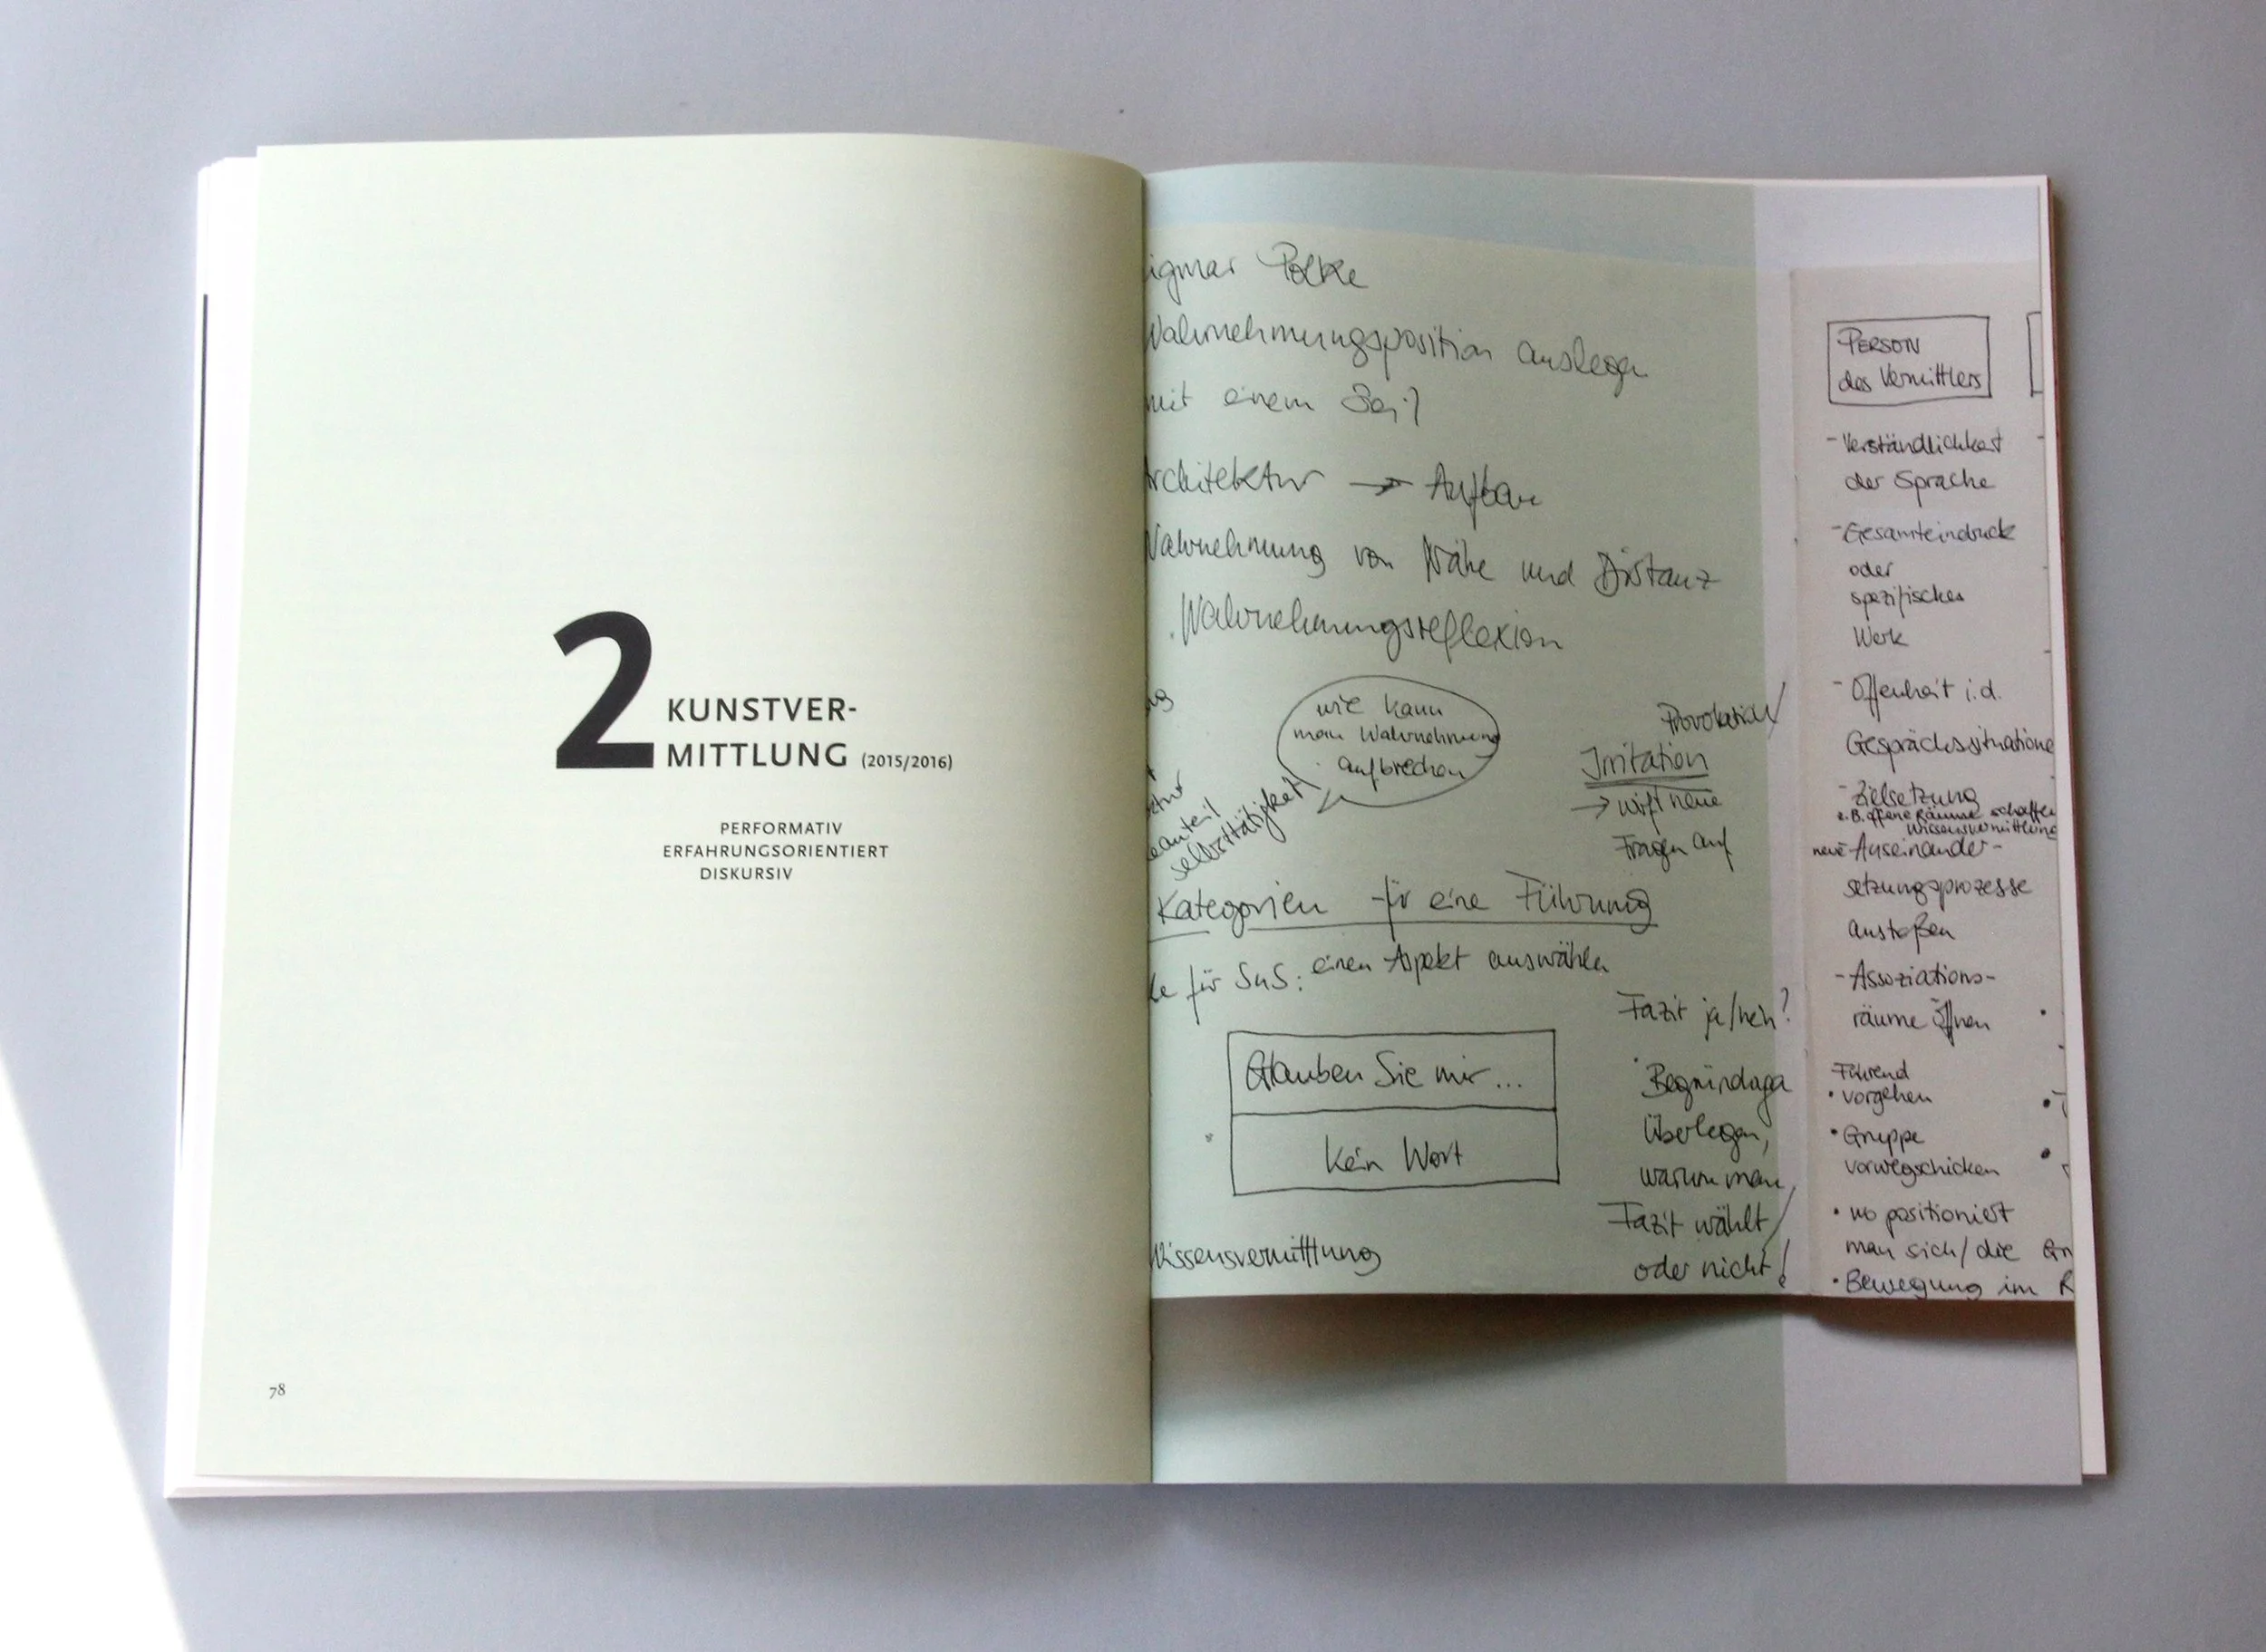 2
KUNSTVER-
MITTLUNG (2015/2016)
PERFORMATIV
ERFAHRUNGSORIENTIERT
DISKURSIV
78
igmar Polke
Wahrnehmungsposition auslegen
mit einem Seil
Architektur → Aufbau
Wahrnehmung von Nähe und Distanz
Wahrnehmungsreflexion
wie kann
man Wahrnehmung
aufbrechen
selbsttätigkeit
Provokation/
Irritation
→ wirft neue
Fragen auf
Kategorien für eine Führung
für SuS: einen Aspekt auswählen
Glauben Sie mir...
Kein Wort
Fazit ja/nein?
Begründung
überlegen,
warum man
Fazit wählt/
oder nicht!
Wissensvermittlung
PERSON
des Vermittlers
- Verständlichkeit
der Sprache
- Gesamteindruck
oder
spezifisches
Werk
- Offenheit i.d.
Gesprächssituatione
- Zielsetzung
z.B. offene Räume schaffen
Wissensvermittlung
neue Auseinander-
setzungsprozesse
anstoßen
- Assoziations-
räume öffnen
Führend
• vorgehen
• Gruppe
vorwegschicken
• wo positioniert
man sich/die Gr
• Bewegung im R